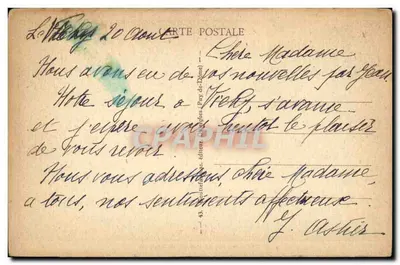 Vichy 20 Août
CARTE POSTALE
Chère Madame
Nous avons eu de vos nouvelles par Jean
Notre séjour a Vichy, s'avance
et j'espère avoir bientot le plaisir
de vous revoir
Nous vous adressons, chère Madame,
a tous, nos sentiments affectueux
Y. Astier
CARTHAPOSTALE